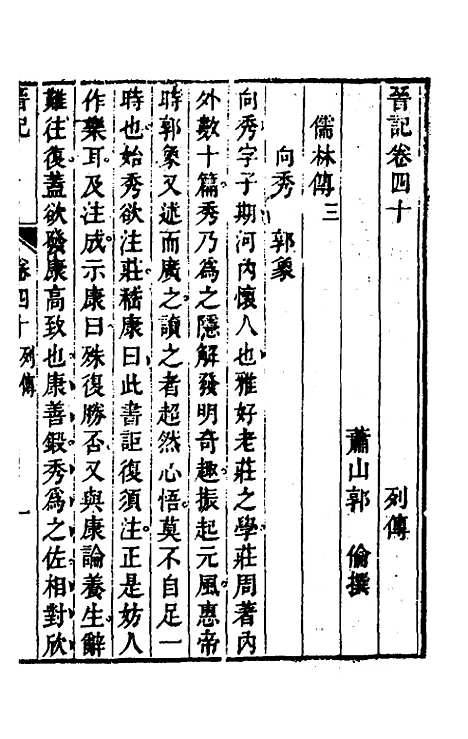 晉記卷四十　列傳
蕭山郭　倫撰
儒林傳三
向秀　郭象
向秀字子期河內懷人也雅好老莊之學莊周著內
外數十篇秀乃爲之隱解發明奇趣振起元風惠帝
時郭象又述而廣之讀之者超然心悟莫不自足一
時也始秀欲注莊嵇康曰此書詎復須注正是妨人
作樂耳及注成示康曰殊復勝否又與康論養生辭
難往復蓋欲發康高致也康善鍛秀爲之佐相對欣
晉記　卷四十　列傳　一